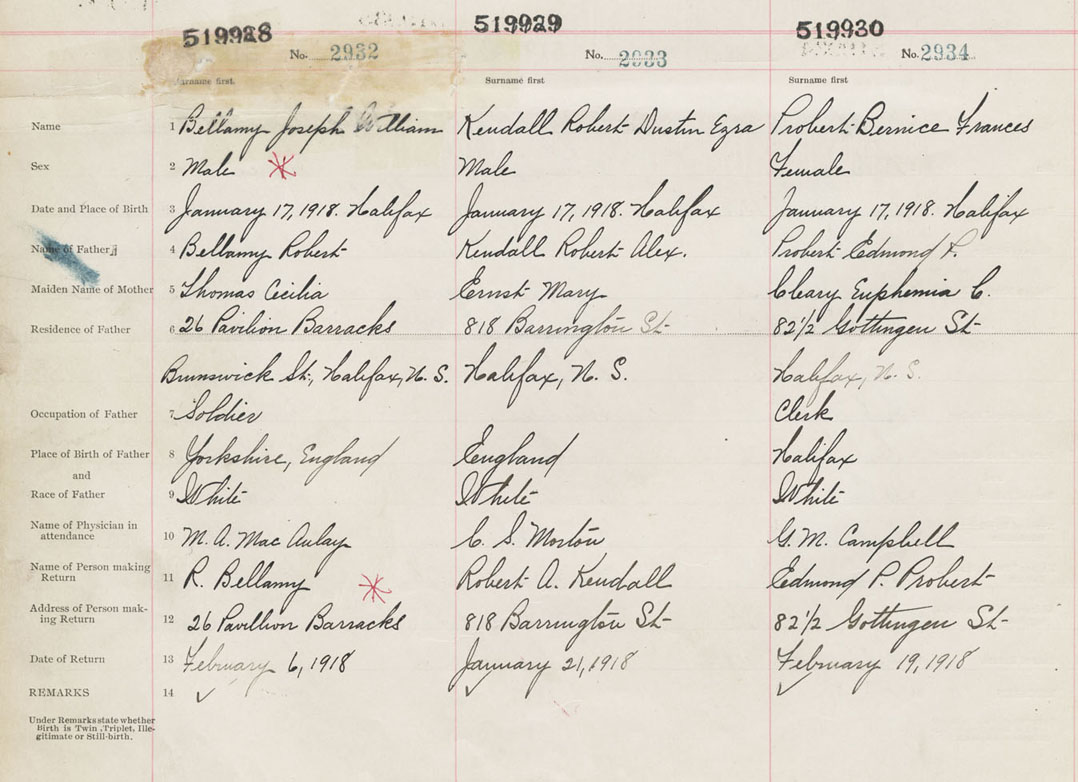 519928 519929 519930
No. 2932 No. 2933 No. 2934
Surname first Surname first Surname first
Name 1 Bellamy Joseph William Kendall Robert Dustin Ezra Probert Bernice Frances
Sex 2 Male Male Female
Date and Place of Birth 3 January 17, 1918. Halifax January 17, 1918. Halifax January 17, 1918. Halifax
Name of Father 4 Bellamy Robert Kendall Robert Alex. Probert Edmond P.
Maiden Name of Mother 5 Thomas Cecilia Ernst Mary Cleary Euphemia C.
Residence of Father 6 26 Pavilion Barracks 818 Barrington St 82 1/2 Gottingen St
Brunswick St., Halifax, N. S. Halifax, N. S. Halifax, N. S.
Occupation of Father 7 Soldier Clerk
Place of Birth of Father 8 Yorkshire, England England Halifax
and
Race of Father 9 White White White
Name of Physician in
attendance 10 M. A. MacAulay C. S. Morton G. M. Campbell
Name of Person making
Return 11 R. Bellamy Robert A. Kendall Edmond P. Probert
Address of Person mak-
ing Return 12 26 Pavillion Barracks 818 Barrington St 82 1/2 Gottingen St
Date of Return 13 February 6, 1918 January 21, 1918 February 19, 1918
REMARKS 14
Under Remarks state whether
Birth is Twin, Triplet, Ille-
gitimate or Still-birth.